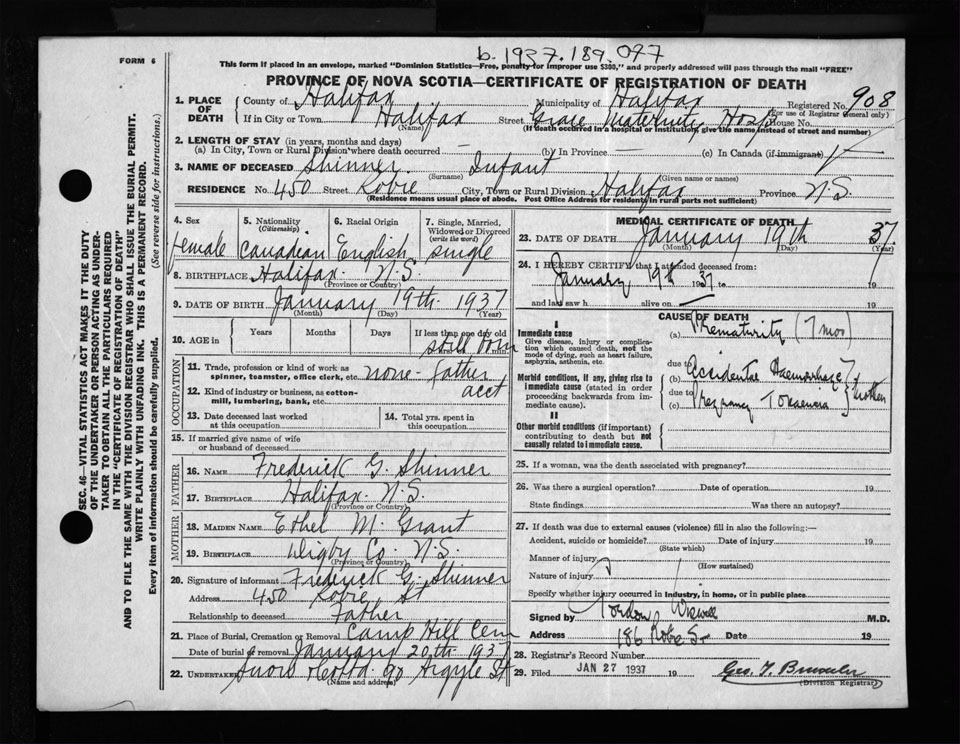 b. 1937.189.097
FORM 6
This form if placed in an envelope, marked "Dominion Statistics—Free, penalty for improper use $300," and properly addressed will pass through the mail "FREE"
PROVINCE OF NOVA SCOTIA—CERTIFICATE OF REGISTRATION OF DEATH
1. PLACE OF DEATH County of Halifax Municipality of Halifax Registered No. 908
(For use of Registrar General only)
If in City or Town Halifax Street Grace Maternity Hosp House No.
(Name) (If death occurred in a hospital or institution, give the name instead of street and number)
2. LENGTH OF STAY (in years, months and days)
(a) In City, Town or Rural Division where death occurred — (b) In Province — (c) In Canada (if immigrant)
3. NAME OF DECEASED Shinner. Infant
(Surname) (Given name or names)
RESIDENCE No. 450 Street Robie City, Town or Rural Division Halifax Province N.S.
(Residence means usual place of abode. Post Office Address for residents in rural parts not sufficient)
4. Sex 5. Nationality (Citizenship) 6. Racial Origin 7. Single, Married, Widowed or Divorced (write the word)
female Canadian English single
8. BIRTHPLACE Halifax. N.S.
(Province or Country)
9. DATE OF BIRTH January 19th. 1937
(Month) (Day) (Year)
10. AGE in Years Months Days If less than one day old
still born
hrs. min.
OCCUPATION
11. Trade, profession or kind of work as spinner, teamster, office clerk, etc. none - father
12. Kind of industry or business, as cotton-mill, lumbering, bank, etc. acct
13. Date deceased last worked at this occupation
14. Total yrs. spent in this occupation
15. If married give name of wife or husband of deceased
FATHER
16. NAME Frederick G. Shinner
17. BIRTHPLACE Halifax. N.S.
(Province or Country)
MOTHER
18. MAIDEN NAME Ethel M. Grant
19. BIRTHPLACE Digby Co. N.S.
(Province or Country)
20. Signature of informant Frederick G. Shinner
Address 450 Robie St
Relationship to deceased Father
21. Place of Burial, Cremation or Removal Camp Hill Cem
Date of burial or removal January 20th. 1937
22. UNDERTAKER Snow &  Co Ltd. 90 Argyle St
(Name and address)
MEDICAL CERTIFICATE OF DEATH
23. DATE OF DEATH January 19th 37
(Month) (Day) (Year)
24. I HEREBY CERTIFY that I attended deceased from:
January 19th 1937 to 19
and last saw h alive on — 19
CAUSE OF DEATH
I
Immediate cause
Give disease, injury or complication which caused death, not the mode of dying, such as heart failure, asphyxia, asthenia, etc.
(a) Prematurity (7 mos)
due to
Morbid conditions, if any, giving rise to immediate cause (stated in order proceeding backwards from immediate cause).
(b) Accidental Haemorrhage
due to
(c) Pregnancy Toxaemia
} mother
II
Other morbid conditions (if important) contributing to death but not causally related to immediate cause.
25. If a woman, was the death associated with pregnancy?
26. Was there a surgical operation? Date of operation 19
State findings Was there an autopsy?
27. If death was due to external causes (violence) fill in also the following:—
Accident, suicide or homicide? Date of injury 19
(State which)
Manner of injury
(How sustained)
Nature of injury
Specify whether injury occurred in Industry, in home, or in public place
Signed by Gordon Wiswell M.D.
Address 186 Robie St Date 19
28. Registrar's Record Number
29. Filed JAN 27 1937 19
(Division Registrar)
SEC. 46—VITAL STATISTICS ACT MAKES IT THE DUTY
OF THE UNDERTAKER OR PERSON ACTING AS UNDER-
TAKER TO OBTAIN ALL THE PARTICULARS REQUIRED
IN THE "CERTIFICATE OF REGISTRATION OF DEATH"
AND TO FILE THE SAME WITH THE DIVISION REGISTRAR WHO SHALL ISSUE THE BURIAL PERMIT.
WRITE PLAINLY WITH UNFADING INK. THIS IS A PERMANENT RECORD.
Every item of information should be carefully supplied. (See reverse side for instructions.)